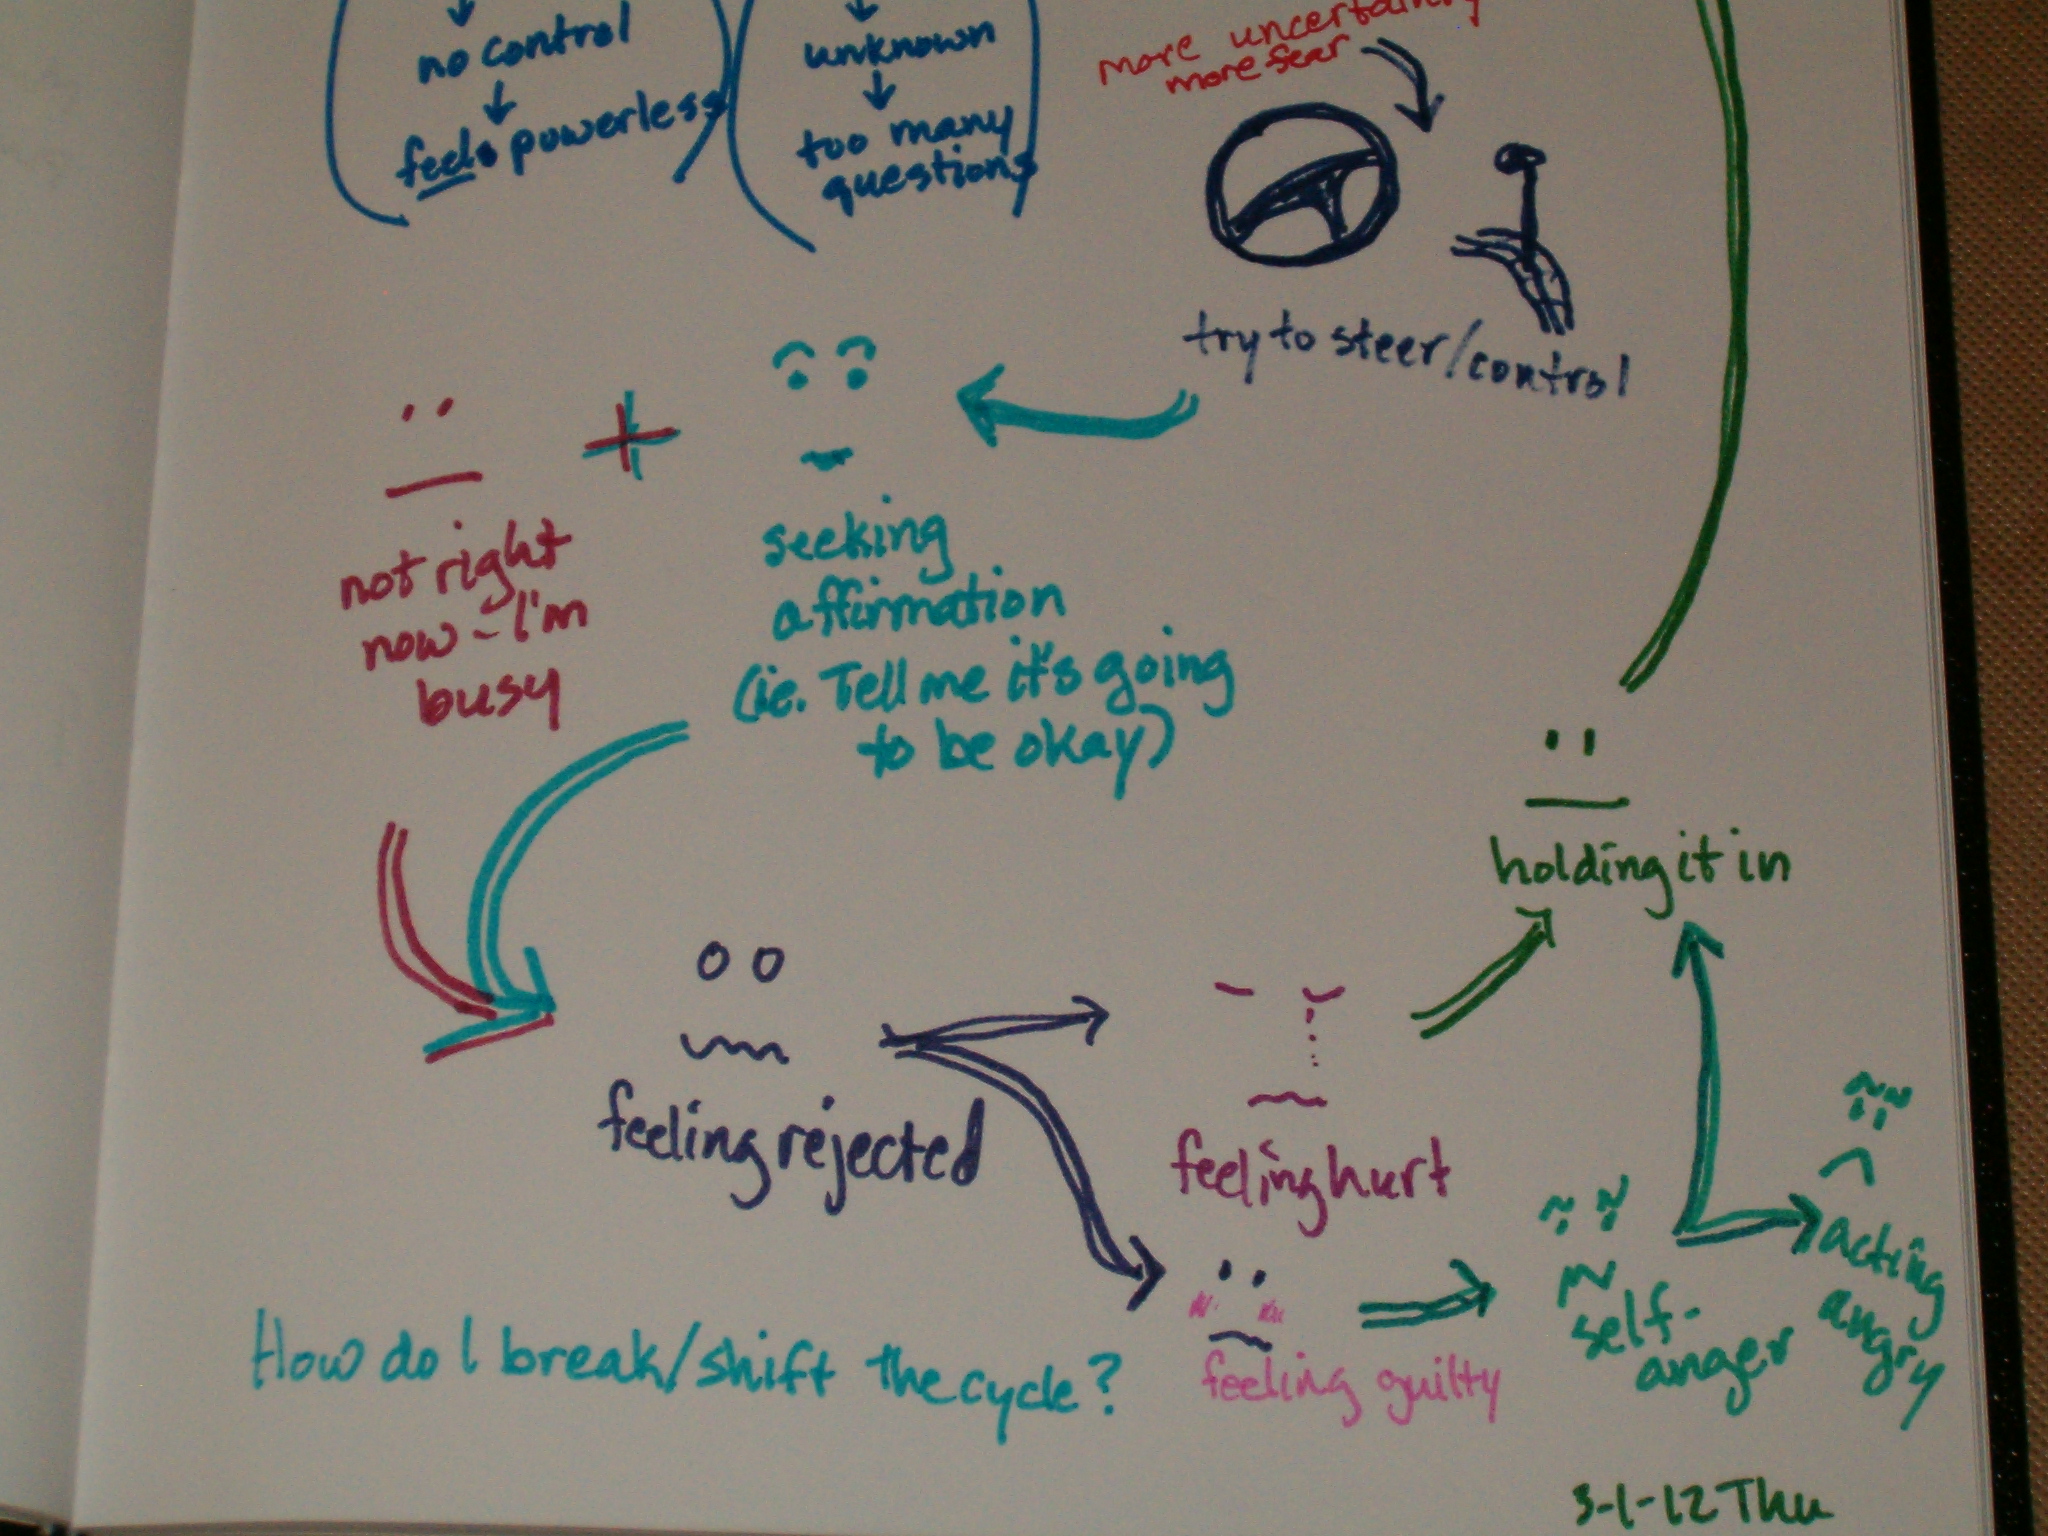 no control
feels powerless
unknown
too many
questions
more uncertainty
more fear
try to steer/control
not right
now - I'm
busy
seeking
affirmation
(ie. Tell me it's going
to be okay)
holding it in
feeling rejected
feeling hurt
feeling guilty
self-
anger
acting
angry
How do I break/shift the cycle?
3-1-12 Thu